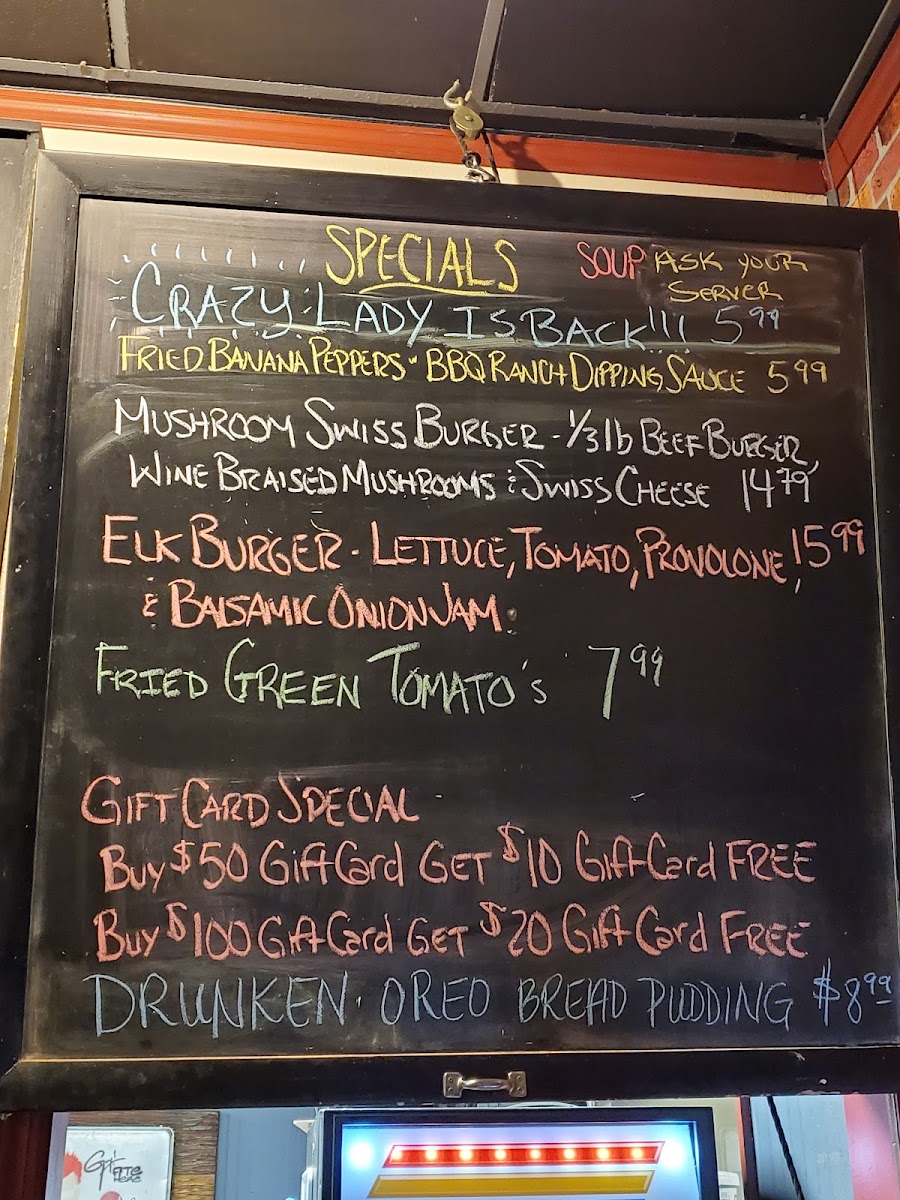 SPECIALS
SOUP ASK YOUR
SERVER
CRAZY LADY IS BACK!!! 5 99
FRIED BANANA PEPPERS - BBQ RANCH DIPPING SAUCE 5 99
MUSHROOM SWISS BURGER - 1/3 lb BEEF BURGER,
WINE BRAISED MUSHROOMS & SWISS CHEESE 14 79
ELK BURGER - LETTUCE, TOMATO, PROVOLONE, 15 99
& BALSAMIC ONION JAM.
FRIED GREEN TOMATO'S 7 99
GIFT CARD SPECIAL
Buy $50 Gift Card GET $10 Gift Card FREE
Buy $100 Gift Card GET $20 Gift Card FREE
DRUNKEN OREO BREAD PUDDING $8 99